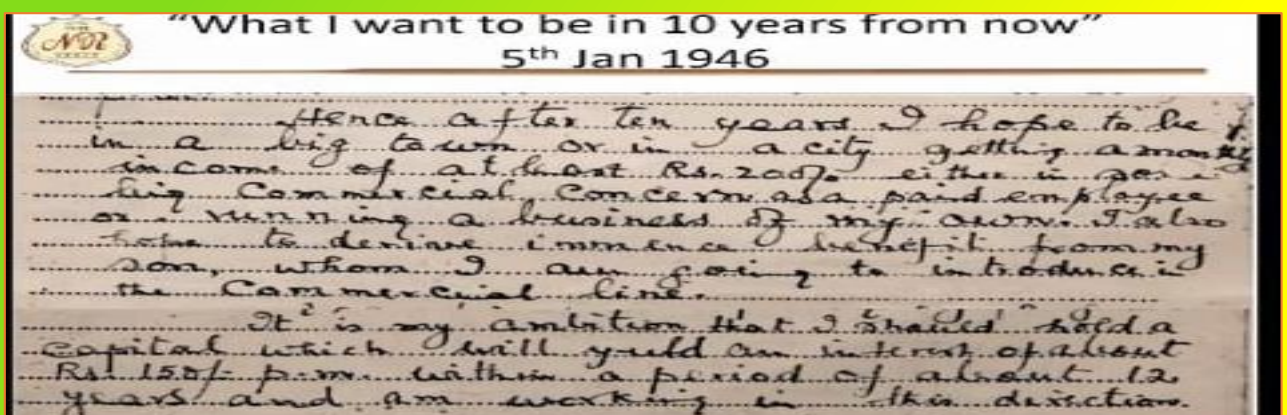 "What I want to be in 10 years from now"
5th Jan 1946
NR
Hence after ten years I hope to be
in a big town or in a city getting a monthly
income of at least Rs. 200/- either in
big Commercial Concern as a paid employee
or running a business of my own. I also
hope to derive immence benefit from my
son, whom I am going to introduce in
the Commercial line.
It is my ambition that I should hold a
capital which will yeild an interest of about
Rs. 150/- p.m. within a period of about 12
years and am working in this direction.